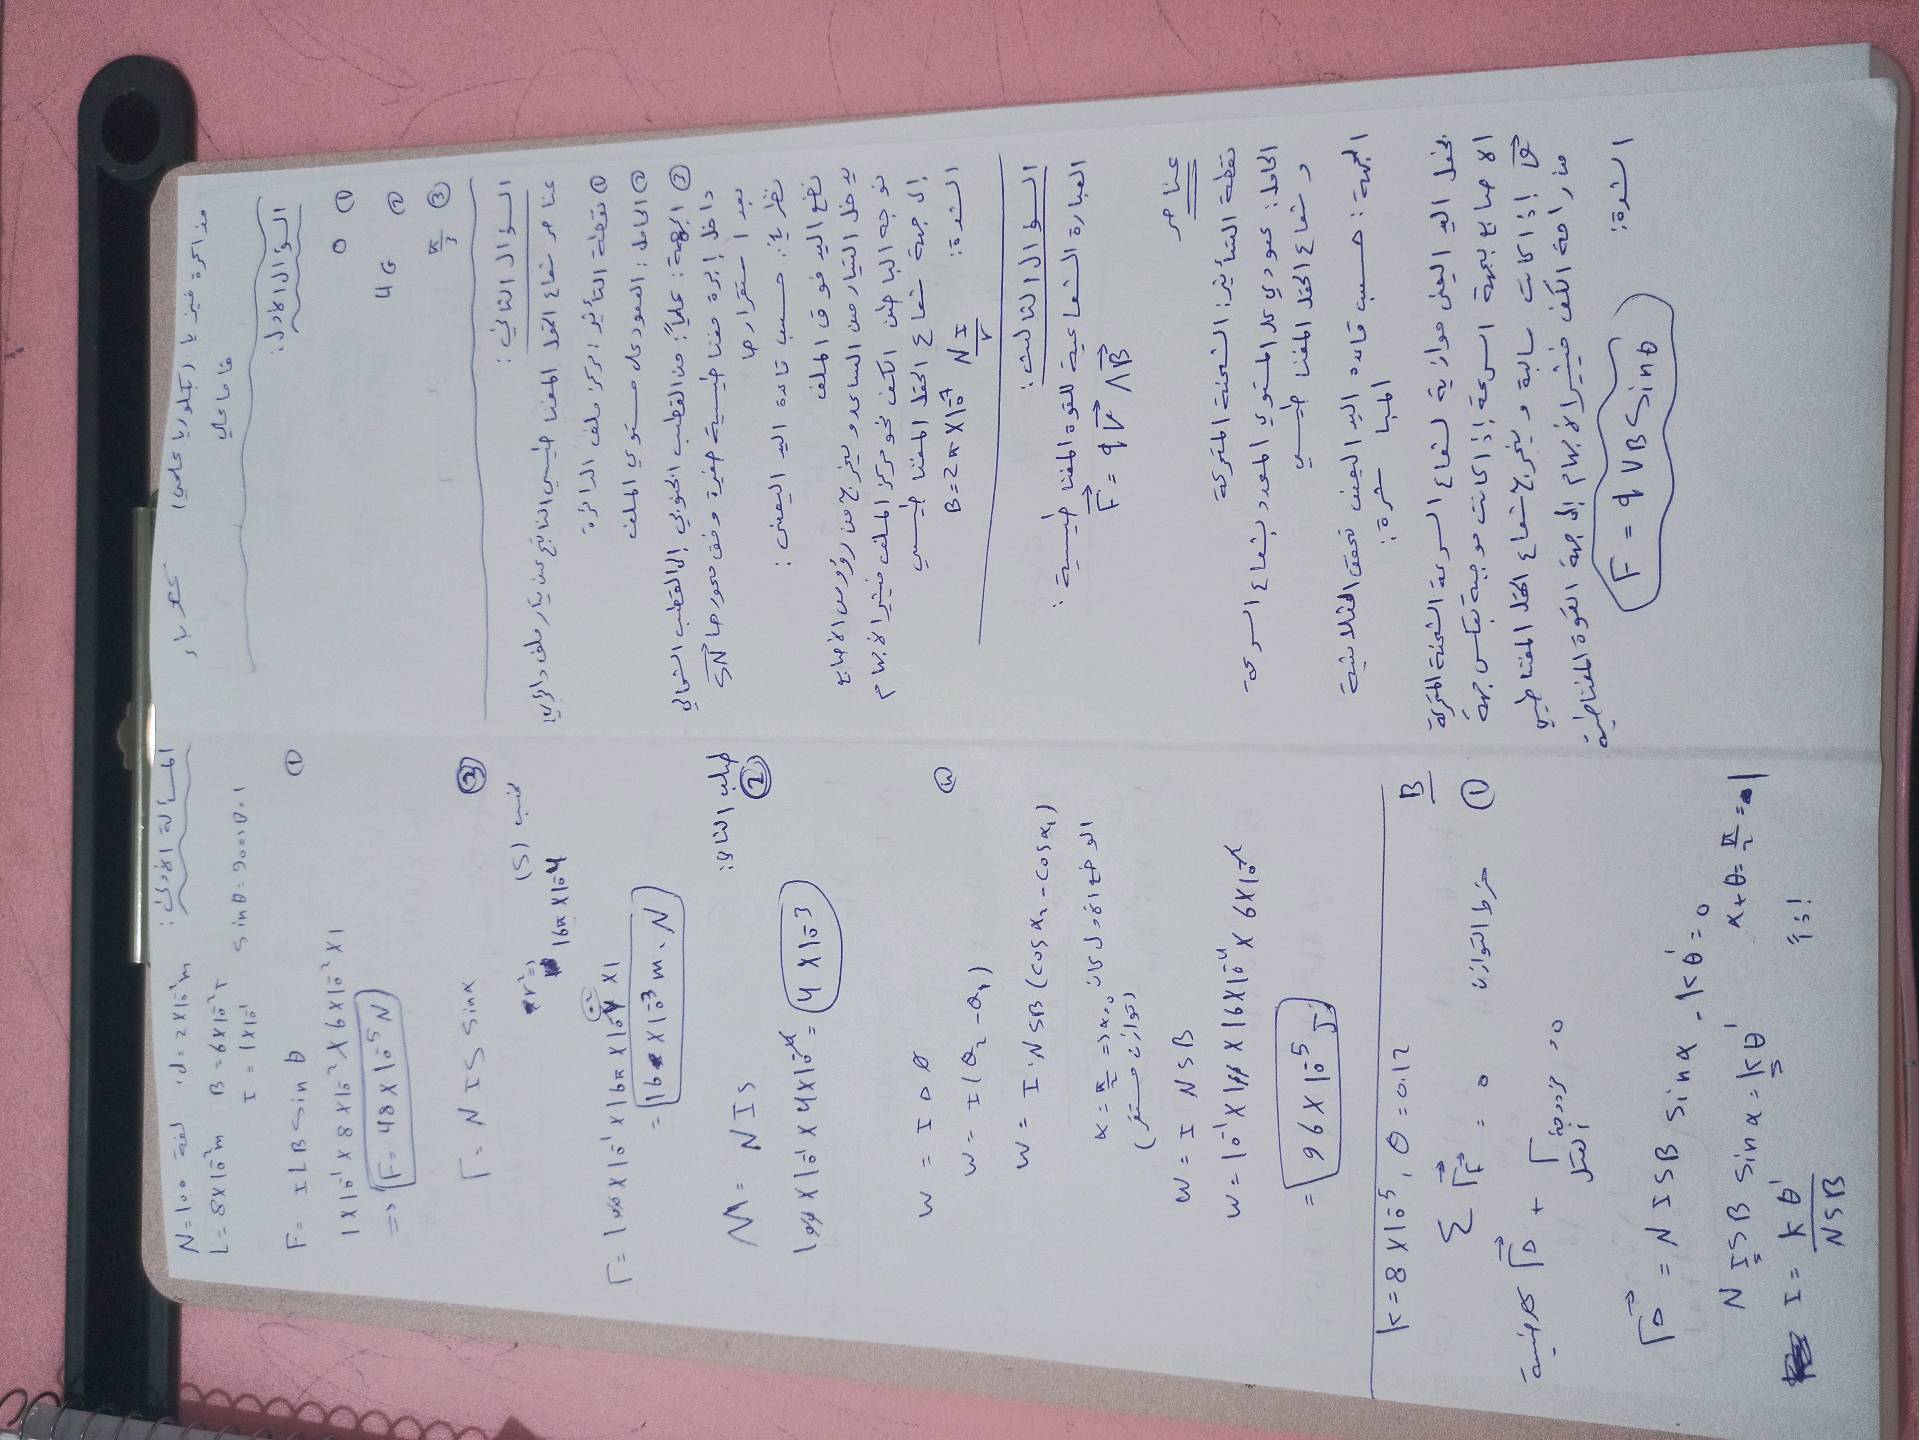 مذاكرة فيزياء (بكلوريا علمي)
السؤال الأول:
① 0
② 4G
③ π/3
السؤال الثاني:
عناصر شعاع الحقل المغناطيسي الناتج عن تيار ملف دائري:
① نقطة التأثير: مركز ملف الدائرة
② الحامل: العمود على مستوي الملف
③ الجهة: عملياً: من القطب الجنوبي إلى القطب الشمالي
داخل إبرة مغناطيسية صغيرة وفق محورها SN
بعد استقرارها
نظرياً: حسب قاعدة اليد اليمنى:
نضع اليد فوق الملف
يدخل التيار من الساعد ويخرج من رؤوس الأصابع
نوجه باطن الكف نحو مركز الملف فيشير الإبهام
إلى جهة شعاع الحقل المغناطيسي
الشدة: B = 2π × 10⁻⁷ NI/r
السؤال الثالث:
العبارة الشعاعية للقوة المغناطيسية:
F = q V ∧ B
عناصر
نقطة التأثير: الشحنة المتحركة
الحامل: عمودي على المستوي المحدد بشعاع السرعة
و شعاع الحقل المغناطيسي
الجهة: حسب قاعدة اليد اليمنى تحقق الثلاثية
المباشرة:
نجعل اليد اليمنى موازية لشعاع السرعة الشحنة المتحركة
الأصابع بجهة السرعة إذا كانت موجبة بعكس جهة
إذا كانت سالبة ويخرج شعاع الحقل المغناطيسي
من راحة الكف فيشير الإبهام إلى جهة القوة المغناطيسية
الشدة:
F = q V B Sin θ
المسألة الأولى:
N = 100 لفة , d = 2 × 10⁻² m
L = 8 × 10⁻² m B = 6 × 10⁻² T
I = 1 × 10⁻¹ Sin θ = 90 => θ = 1
①
F = I L B Sin θ
1 × 10⁻¹ × 8 × 10⁻² × 6 × 10⁻² × 1
=> F = 48 × 10⁻⁵ N
②
Γ = N I S Sin α
نحسب (S)
πr² => 16π × 10⁻⁴
Γ = 100 × 10⁻¹ × 16π × 10⁻⁴ × 1
= 16 × 10⁻³ m.N
طلب الثاني: ②
M = N I S
100 × 10⁻¹ × 4 × 10⁻⁴ = 4 × 10⁻³
③
W = I Δ Φ
W = I (Φ₂ - Φ₁)
W = I . N S B (cos α₂ - cos α₁)
الوضع الأول كان α = π/2 => α₂ = 0
(توازن مستقر)
W = I N S B
W = 10⁻¹ × 100 × 16 × 10⁻⁴ × 6 × 10⁻²
= 96 × 10⁻⁵ J
B
K = 8 × 10⁻⁵ , θ = 0.12
شرط التوازن ①
Σ Γ = 0
Γ_Δ + Γ مزدوجة الفتل = 0
Γ_Δ = N I S B Sin α - K θ' = 0
N I S B Sin α = K θ' α + θ = π/2 = 1
I = K θ' / N S B إذاً